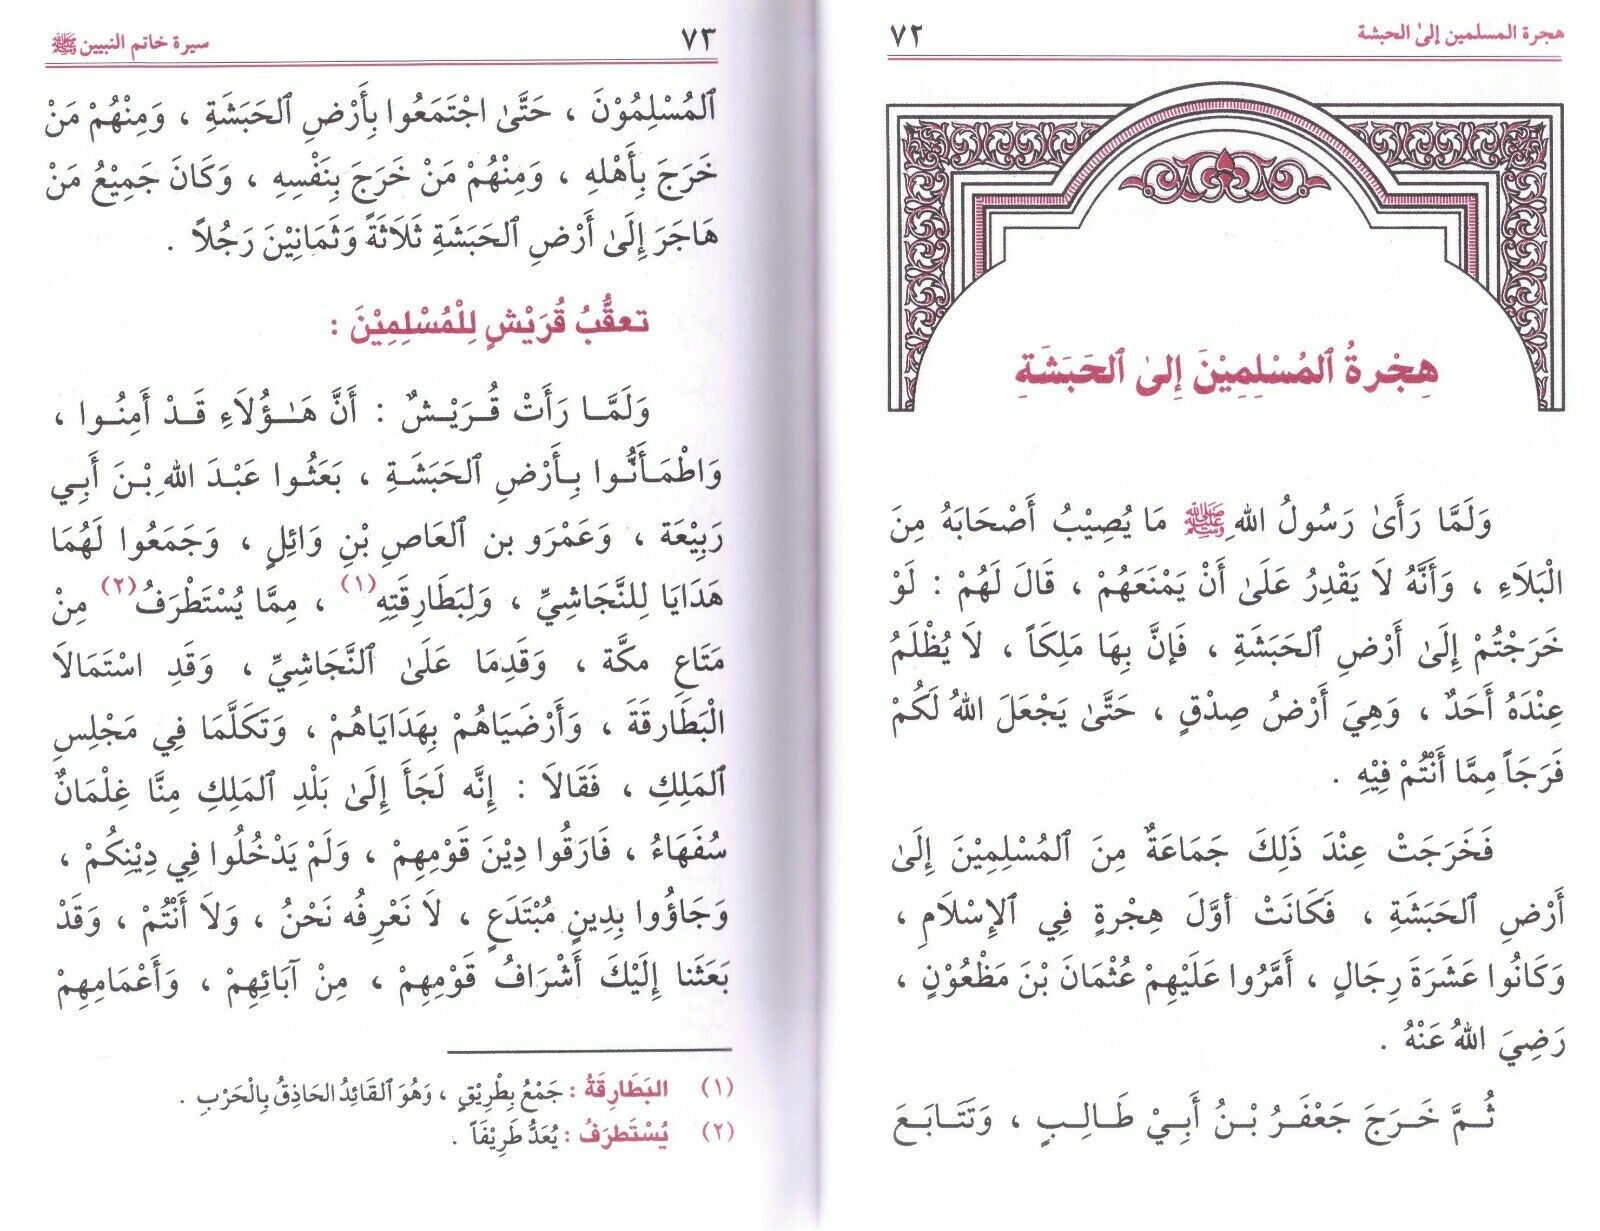 هجرة المسلمين إلى الحبشة
٧٢
هِجْرةُ ٱلمُسْلِمِيْنَ إِلىٰ ٱلحَبَشَةِ
وَلَمَّا رَأَىٰ رَسُولُ اللهِ ﷺ مَا يُصِيْبُ أَصْحَابَهُ مِنَ
الْبَلَاءِ ، وَأَنَّهُ لَا يَقْدِرُ عَلَىٰ أَنْ يَمْنَعَهُمْ ، قَالَ لَهُمْ : لَوْ
خَرَجْتُمْ إِلَىٰ أَرْضِ ٱلحَبَشَةِ ، فَإِنَّ بِهَا مَلِكَاً ، لَا يُظْلَمُ
عِنْدَهُ أَحَدٌ ، وَهِيَ أَرْضُ صِدْقٍ ، حَتَّىٰ يَجْعَلَ اللهُ لَكُمْ
فَرَجَاً مِمَّا أَنْتُمْ فِيْهِ .
فَخَرَجَتْ عِنْدَ ذَلِكَ جَمَاعَةٌ مِنَ ٱلمُسْلِمِيْنَ إِلَىٰ
أَرْضِ ٱلحَبَشَةِ ، فَكَانَتْ أوَّلَ هِجْرةٍ فِي ٱلإِسْلَامِ ،
وَكَانُوا عَشَرَةَ رِجَالٍ ، أَمَّرُوا عَلَيْهِمْ عُثْمَانَ بْنَ مَظْعُوْنٍ ،
رَضِيَ اللهُ عَنْهُ .
ثُمَّ خَرَجَ جَعْفَرُ بْنُ أَبِيْ طَالِبٍ ، وَتَتَابَعَ
٧٣
سيرة خاتم النبيين ﷺ
ٱلمُسْلِمُوْنَ ، حَتَّىٰ اجْتَمَعُوا بِأَرْضِ ٱلحَبَشَةِ ، وَمِنْهُمْ مَنْ
خَرَجَ بِأَهْلهِ ، وَمِنْهُمْ مَنْ خَرَجَ بِنَفْسِهِ ، وَكَانَ جَمِيْعُ مَنْ
هَاجَرَ إِلَىٰ أَرْضِ ٱلحَبَشَةِ ثَلَاثَةً وَثَمَانِيْنَ رَجُلاً .
تعقُّبُ قُرَيْشٍ لِلْمُسْلِمِيْنَ :
وَلَمَّا رَأَتْ قُرَيْشٌ : أَنَّ هَـٰؤُلَاءِ قَدْ أَمِنُوا ،
وَاطْمَأَنُّوا بِأَرْضِ ٱلحَبَشَةِ ، بَعَثُوا عَبْدَ اللهِ بْنَ أَبِي
رَبِيْعَة ، وَعَمْرَو بن ٱلعَاصِ بْنِ وَائِلٍ ، وَجَمَعُوا لَهُمَا
هَدَايَا لِلنَّجَاشِيِّ ، وَلِبَطَارِقَتِهِ (١) ، مِمَّا يُسْتَطْرَفُ (٢) مِنْ
مَتَاعِ مكَّة ، وَقَدِمَا عَلَىٰ ٱلنَّجَاشِيِّ ، وَقَدِ اسْتَمَالَا
الْبَطَارقَةَ ، وَأَرْضَيَاهُمْ بِهَدَايَاهُمْ ، وَتَكَلَّمَا فِي مَجْلِسِ
ٱلمَلِكِ ، فَقَالَا : إِنَّه لَجَأَ إِلَىٰ بَلْدِ ٱلمَلِكِ مِنَّا غِلْمَانٌ
سُفَهَاءُ ، فَارَقُوا دِيْنَ قَوْمِهِمْ ، وَلَمْ يَدْخُلُوا فِي دِيْنِكُمْ ،
وَجَاؤُوا بِدِينٍ مُبْتَدَعٍ ، لَا نَعْرِفُه نَحْنُ ، وَلَا أَنْتُمْ ، وَقَدْ
بَعَثَنا إِلَيْكَ أَشْرَافُ قَوْمِهِمْ ، مِنْ آبَائِهِمْ ، وَأَعْمَامِهِمْ
(١) البَطَارِقَةُ : جَمْعُ بِطْرِيْقٍ ، وَهُوَ ٱلقَائِدُ الحَاذِقُ بِالْحَرْبِ .
(٢) يُسْتَطرَفُ : يُعَدُّ طَرِيْفَاً .